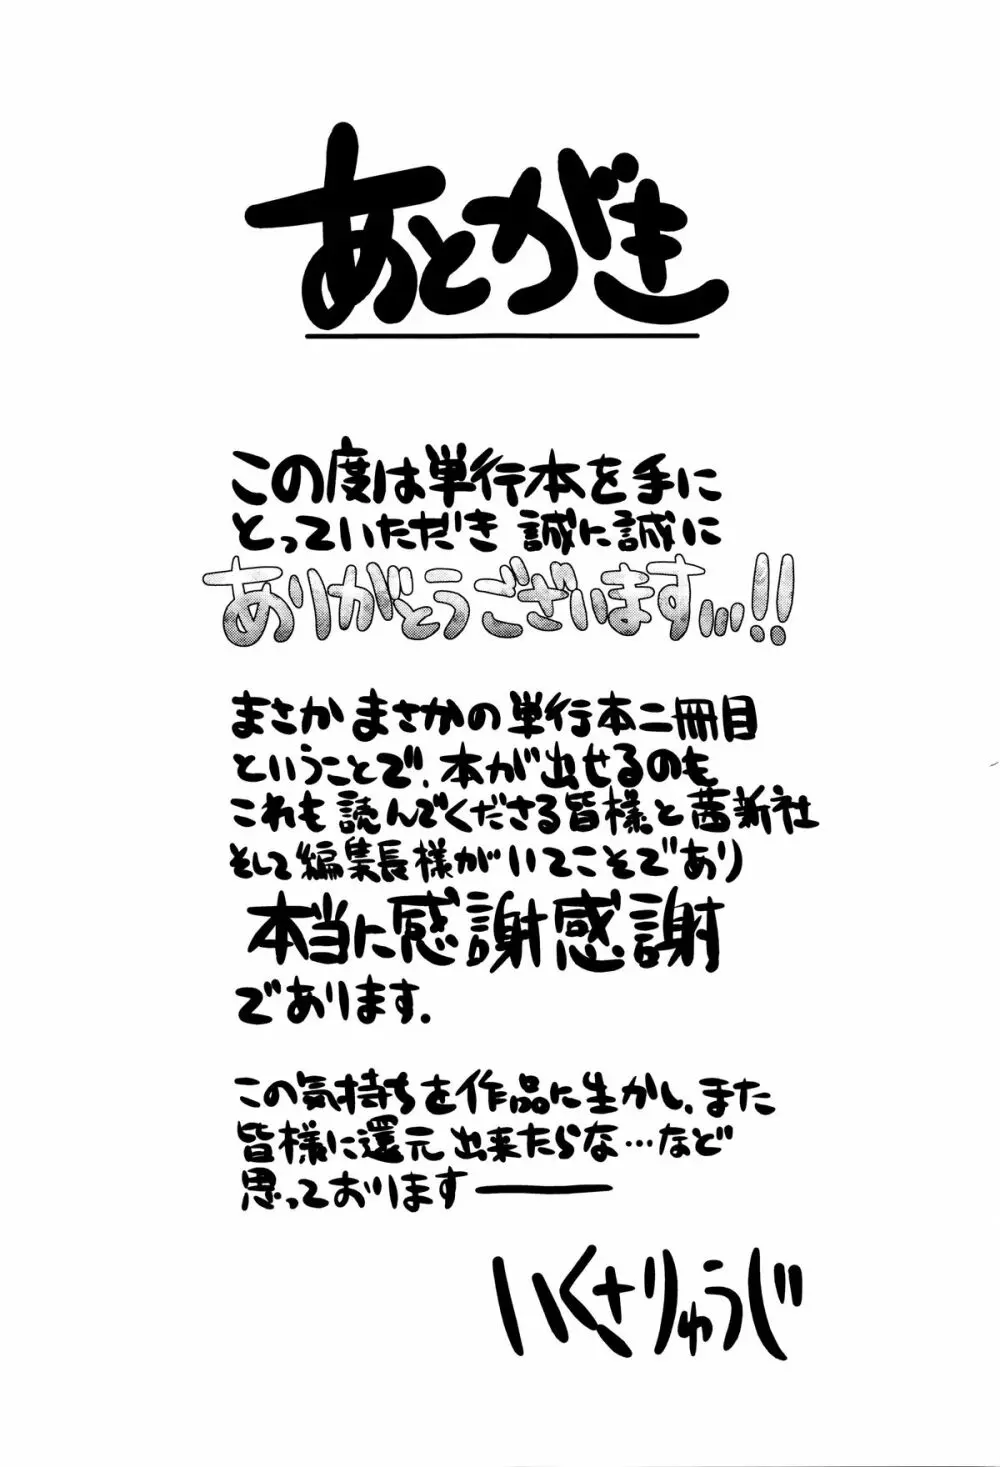 あとがき
この度は単行本を手に
とっていただき 誠に誠に
ありがとうございますッッ!!
まさかまさかの単行本二冊目
ということで、本が出せるのも
これも読んでくださる皆様と茜新社
そして編集長様がいてこそであり
本当に感謝感謝
であります.
この気持ちを作品に生かし、また
皆様に還元出来たらな…など
思っております――
いくさりゅうじ